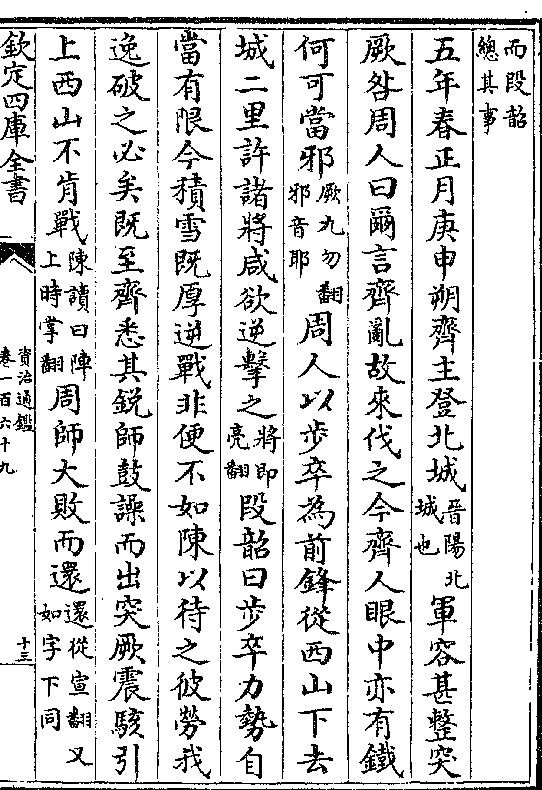 而段韶
總其事
五年春正月庚申朔齊主登北城晉陽北城也軍容甚整突
厥咎周人曰爾言齊亂故來伐之今齊人眼中亦有鐵
何可當邪厥九勿翻邪音耶周人以步卒為前鋒從西山下去
城二里許諸將咸欲逆擊之將即亮翻段韶曰步卒力勢自
當有限今積雪既厚逆戰非便不如陳以待之彼勞我
逸破之必矣既至齊悉其鋭師鼓譟而出突厥震駭引
上西山不肯戰陳讀曰陣上時掌翻周師大敗而還還從宣翻又如字下同
欽定四庫全書
資治通鑑
卷一百六十九
十三